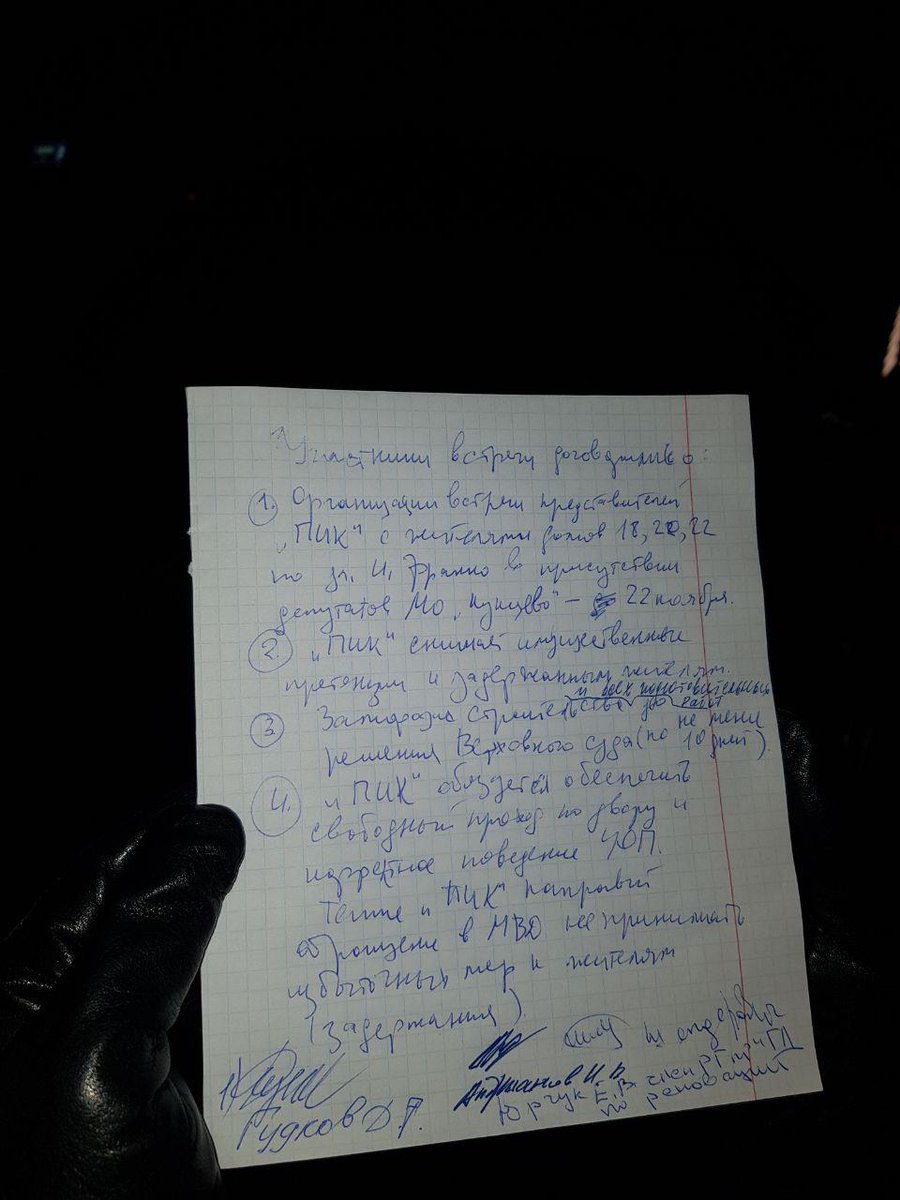 Участники встречи договорились о:
1. Организации встречи представителей
"ПИК" с жителями домов 18, 20, 22
по ул. И. Франко в присутствии
депутатов МО "Кунцево" – 22 ноября.
2. "ПИК" снимает имущественные
претензии к задержанным жителям.
и всех подготовительных
3. Заморозка строительства до работ
решения Верховного суда (по не мене
10 дней).
4. "ПИК" обязуется обеспечить
свободный проход по двору и
корректное поведение ЧОП.
Также "ПИК" направит
обращение в МВД не принимать
избыточных мер к жителям
(задержания)
Гудков Д.Г.
Андрианов И. В.
Юрчук Е.В. эксперт при ГД
по реновации